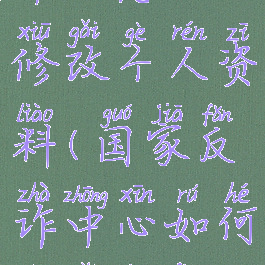 xiū gǎi gè rén zī
修改个人资
liào guó jiā fǎn
料(国家反
zhà zhōng xīn rú hé
诈中心如何